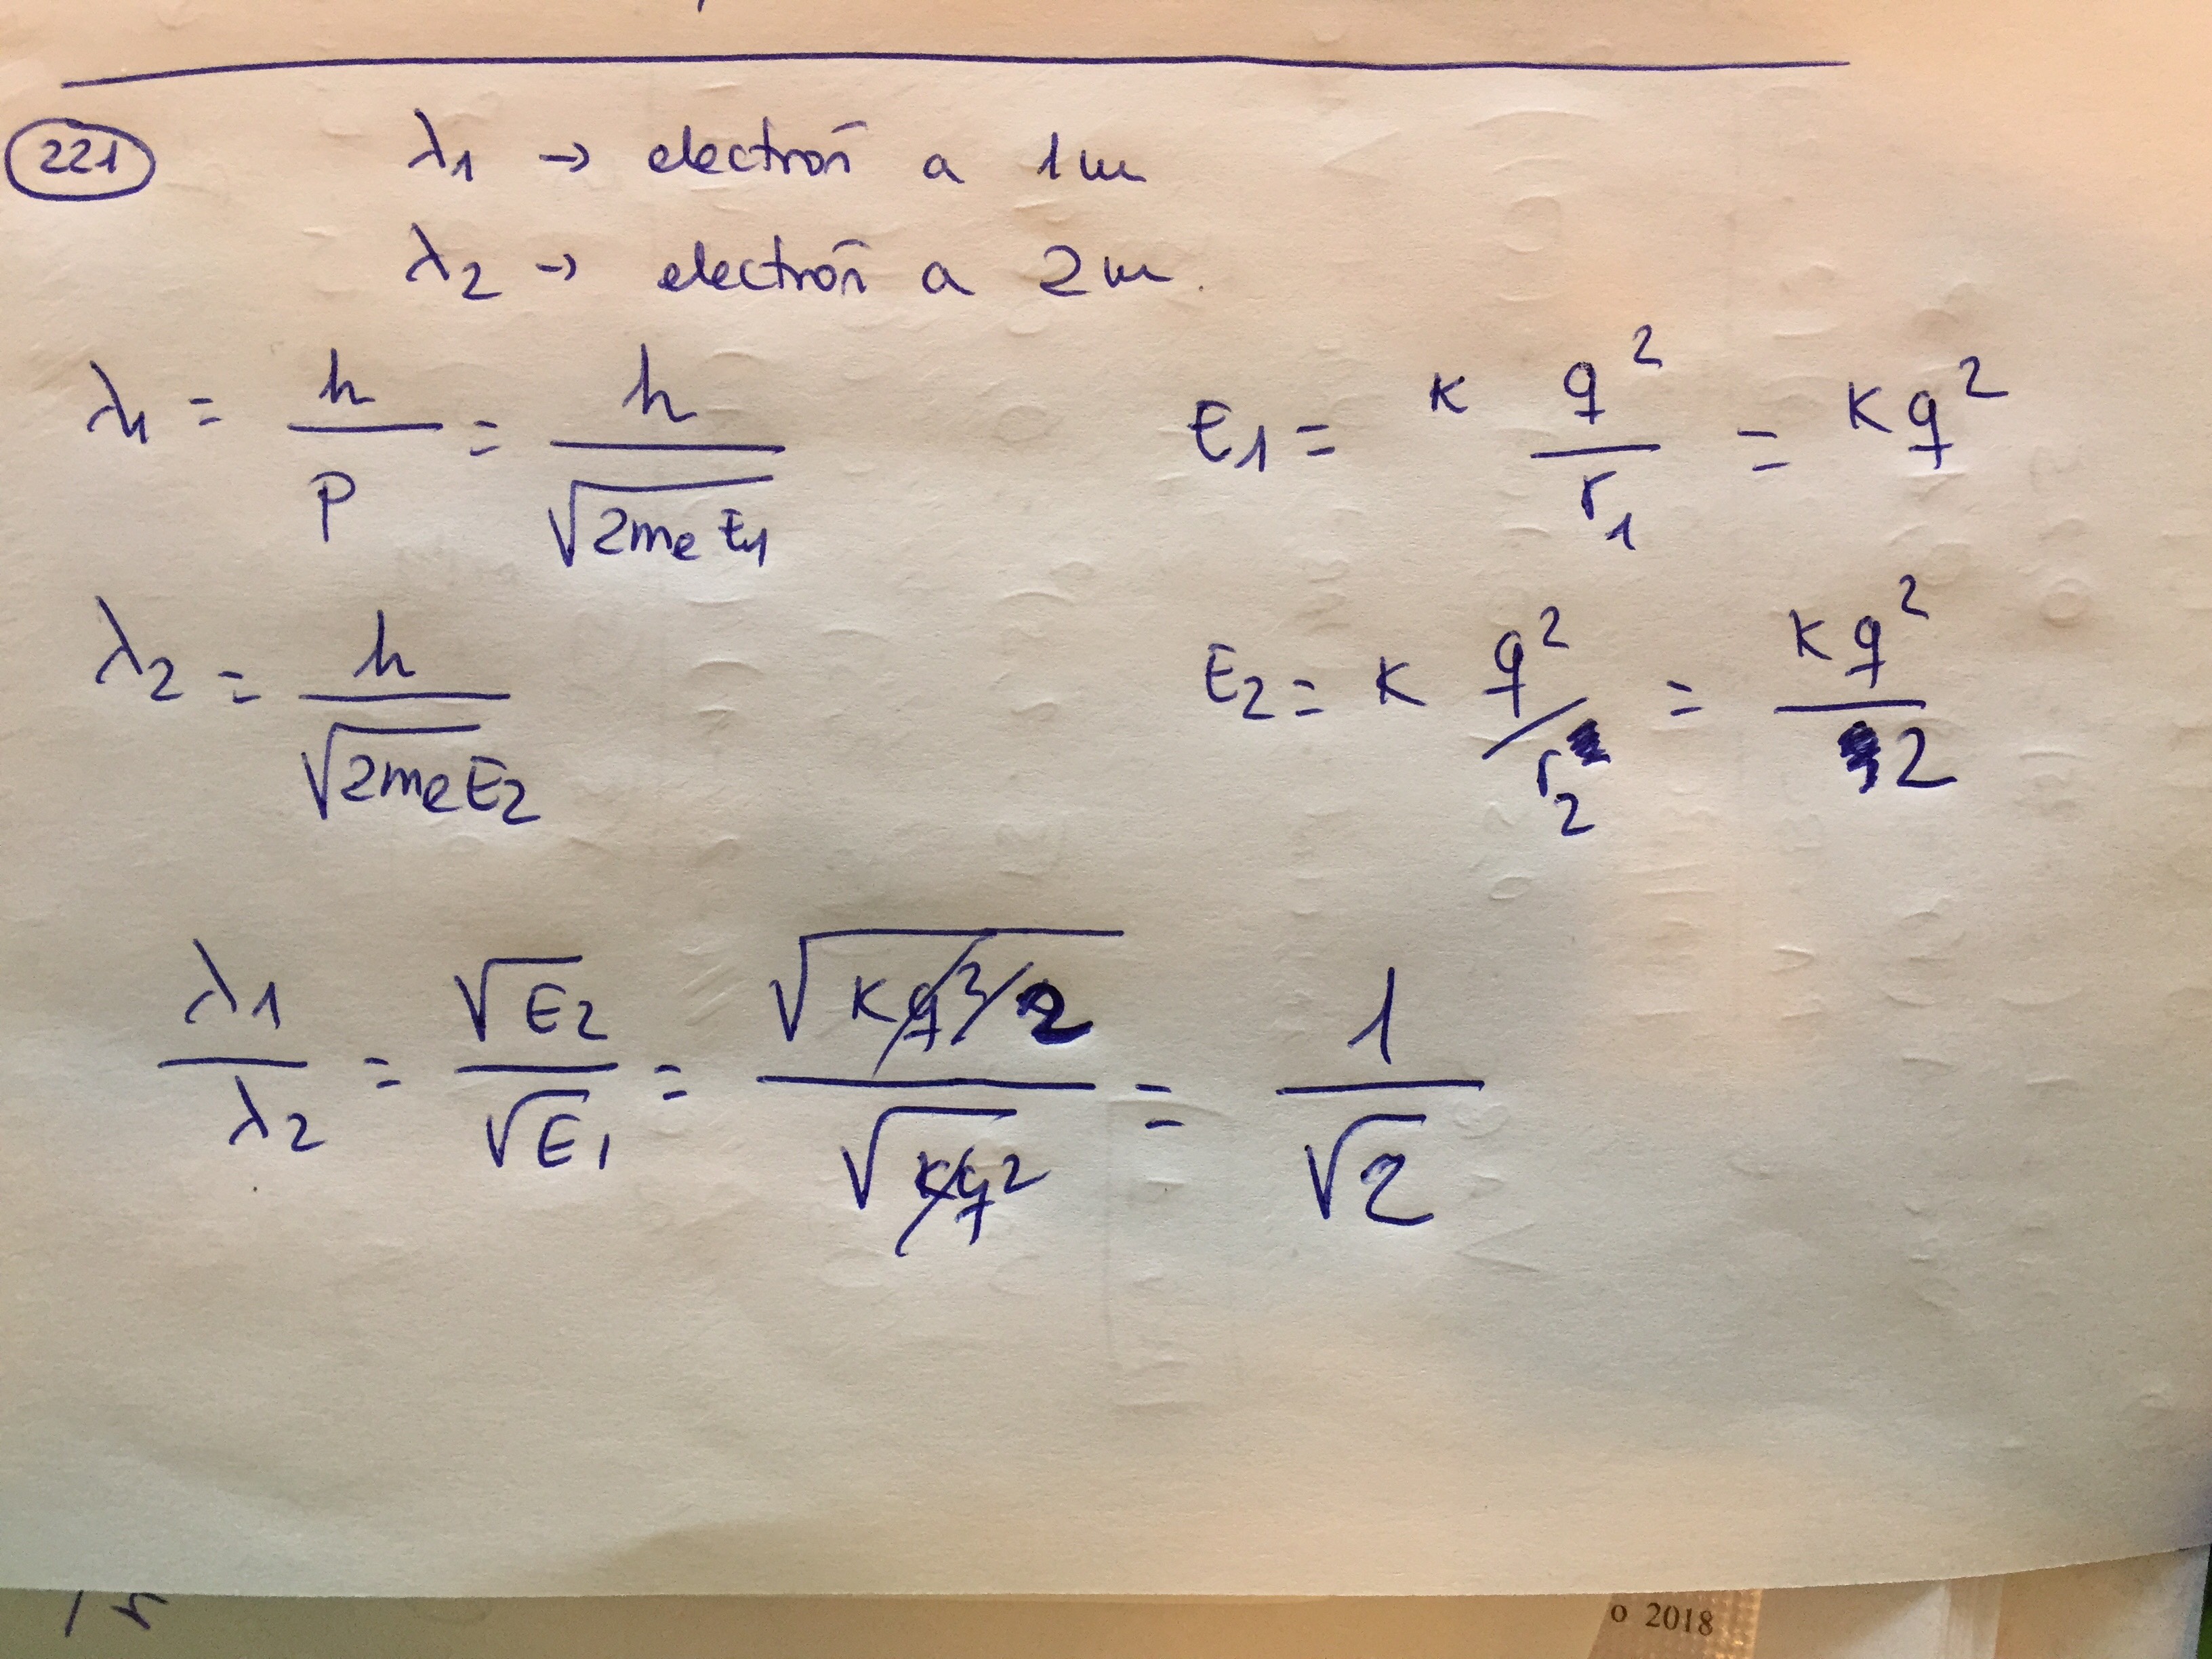 221
λ1 → electrón a 1m
λ2 → electrón a 2m.
λ1 = h/p = h/√(2me E1)
E1 = K q²/r1 = Kq²
λ2 = h/√(2me E2)
E2 = K q²/r2 = Kq²/2
λ1/λ2 = √E2/√E1 = √(Kq²/2)/√(Kq²) = 1/√2
o 2018